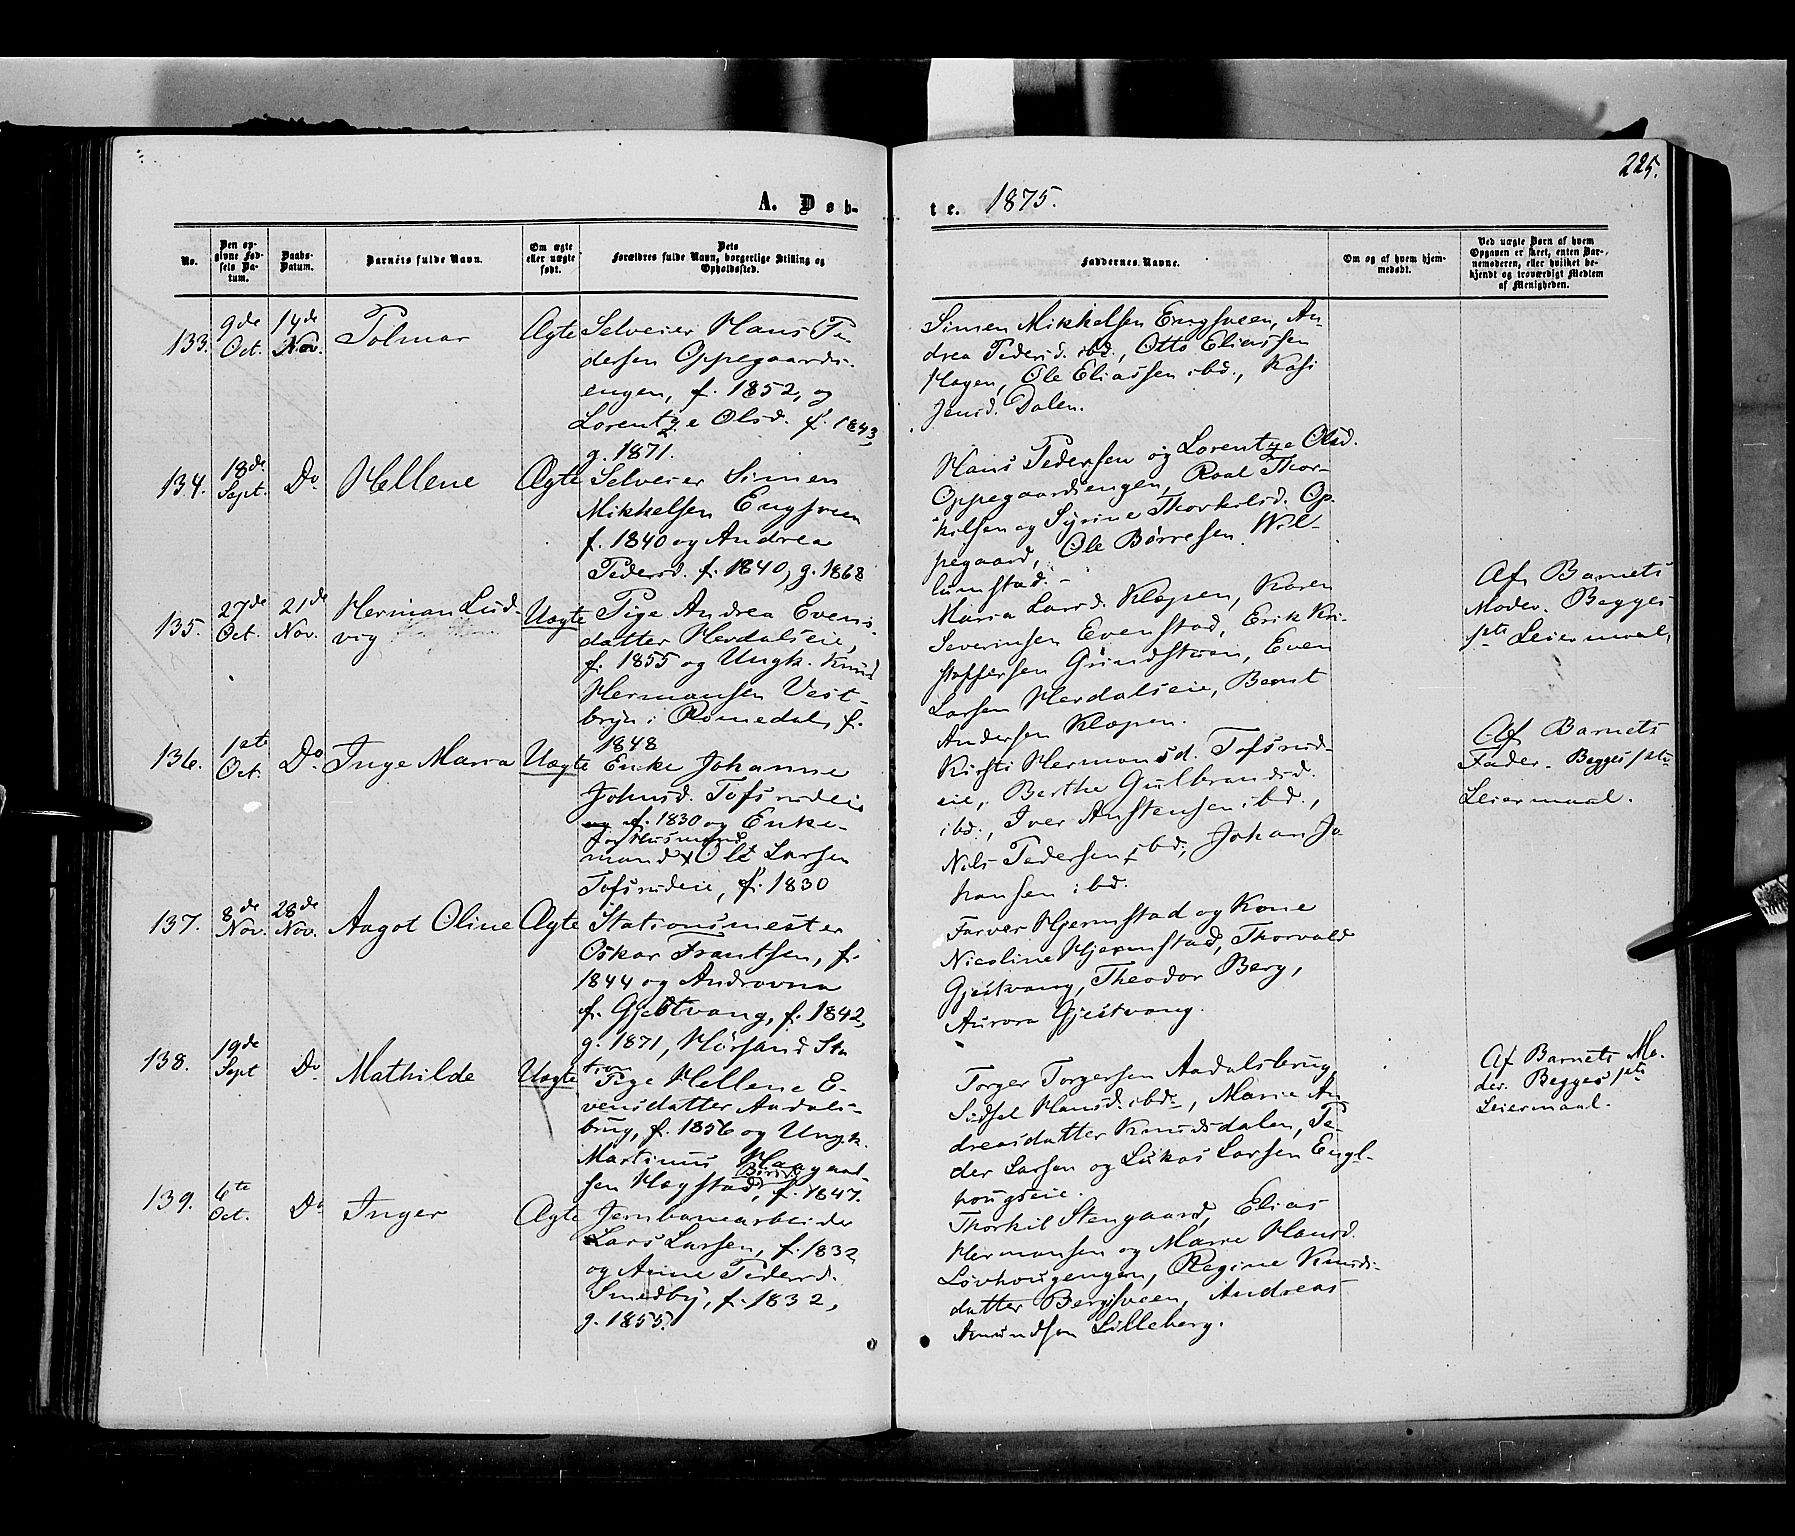 225.
A. Døb-
te. 1875.
No.
Den op-
givne Fød-
sels Da-
tum.
Daabs-
Datum.
Barnets fulde Navn.
Om ægte
eller uægte
født.
Dets
Forældres fulde Navn, borgerlige Stilling og
Opholdssted.
Faddernes Navne.
Om og af hvem hjem-
medøbt.
Ved uægte Børn af hvem
Opgaven er skeet, enten Bar-
nemoderen, eller hvilket be-
kjendt og troværdigt Medlem
af Menigheden.
133.
9de
Oct.
14de
Nov.
Polmar
Ægte
Selveier Hans Pe-
dersen Oppegaards-
engen, f. 1852, og
Lorentze Olsd. f. 1843,
g. 1871.
Simen Mikkelsen Engsveen, An-
drea Pedersd. ibd., Otto Eliassen
Hagen, Ole Eliassen ibd., Kasi
Jensd. Dalen.
134.
18de
Sept.
Do
Hellene
Ægte
Selveier Simen
Mikkelsen Engsveen
f. 1840 og Andrea
Pedersd. f. 1840, g. 1868
Hans Pedersen og Lorentze Olsd.
Oppegaardsengen, Roal Thor-
kilsen og Syrine Thorkilsd. Op-
pegaard, Ole Børresen Wil-
lumstad.
135.
27de
Oct.
21de
Nov.
Herman Lud-
vig
Uægte
Pige Andrea Evens-
datter Herdalseie,
f. 1855 og Ungk. Knud
Hermansen Vest-
bryn i Romedal, f.
1848
Maria Larsd. Klæpen, Karen
Severinsen Evenstad, Erik Kri-
stoffersen Grundstuen, Even
Larsen Herdalseie, Bernt
Andersen Klæpen.
Af Barnets
Moder. Begges
1ste Leiermaal.
136.
1ste
Oct.
Do
Inge Maria
Uægte
Enke Johanne
Johnsd. Tofsrudeie
f. 1830 og Enke-
mand x Ole Larsen
Tofsrudeie, f. 1830
Kirsti Hermansd. Tofsrud-
eie, Berthe Gulbrandsd.
ibd., Iver Anstensen ibd.,
Nils Pedersen ibd., Johan Jo-
hansen ibd.
Af Barnets
Fader. Begges 1ste
Leiermaal.
137.
8de
Nov.
28de
Nov.
Aagot Oline
Ægte
Stationsmester
Oskar Frantsen, f.
1844 og Androvna
f. Gjestvang, f. 1842,
g. 1871, Hørsand Sta
tion
Farver Hjernstad og Kone
Nicoline Hjernstad, Thorvald
Gjestvang, Theodor Berg,
Aurora Gjestvang.
138.
19de
Sept
Do
Mathilde
Uægte
Pige Hellene E-
vensdatter Aadals-
brug, f. 1856 og Ungk.
Martinus Haagaard-
sen Hagstad, f. 1847.
Torger Torgersen Aadalsbrug,
Sidsel Hansd. ibd., Marie An-
dreasdatter Knudsdalen, Pe-
der Larsen og Lukas Larsen Engl-
hougseie.
Af Barnets Mo-
der. Begges 1ste
Leiermaal.
139.
6te
Oct.
Do
Inger
Ægte
Jernbanearbeider
Lars Larsen, f. 1832
og Anne Pedersd.
Smedby, f. 1832,
g. 1855.
Thorkil Stengaard, Elias
Hermansen og Marie Hansd.
Løvhougengen, Regine Knuds-
datter Bergsveen, Andreas
Amundsen Lilleberg.